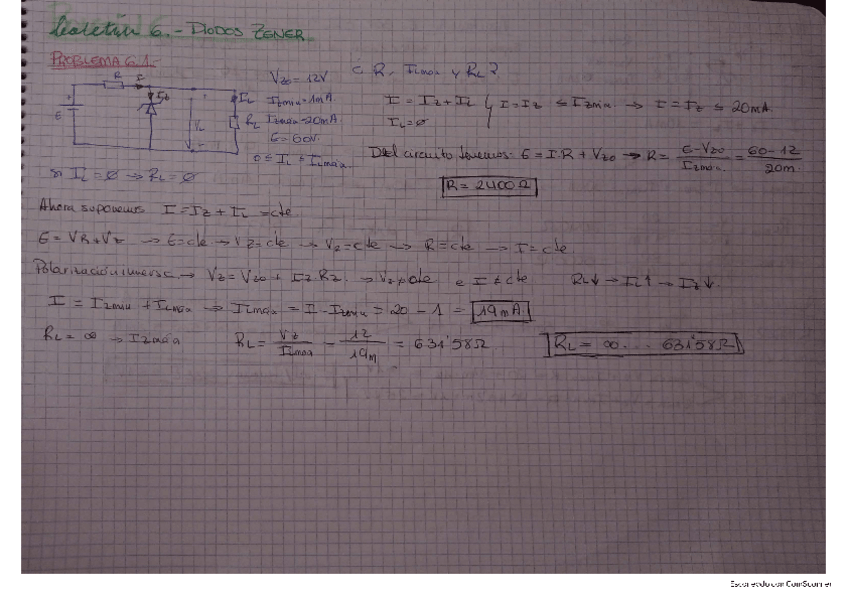 Boletín 6.- DIODOS ZENER
PROBLEMA 6.1.-
R I
E
IL
RL
VL
Vzo = 12V
Izmin = 1mA.
Izmax = 20mA.
E = 60V.
0 ≤ IL ≤ ILmáx.
¿ R, ILmax y RL ?
I = Iz + IL
IL = Ø
I = Iz ≤ Izmáx. → I = Iz ≤ 20mA.
Del circuito tenemos: E = I·R + Vzo → R = E - Vzo / Izmáx. = 60 - 12 / 20m.
si IL = Ø → RL = Ø
R = 2400Ω
Ahora suponemos I = Iz + IL = cte
E = VR + Vz → E = cte → Vz = cte → VR = cte → R = cte → I = cte
Polarización inversa → Vz = Vzo + Iz·Rz → Vz ≠ cte e I ≠ cte RL↓ → IL↑ → Iz↓
I = Izmin + ILmáx → ILmáx = I - Izmin = 20 - 1 = 19mA
RL = ∞ → Izmáx RL = Vz / ILmáx = 12 / 19m = 631'58Ω RL = ∞ ... 631'58Ω
Escaneado con CamScanner